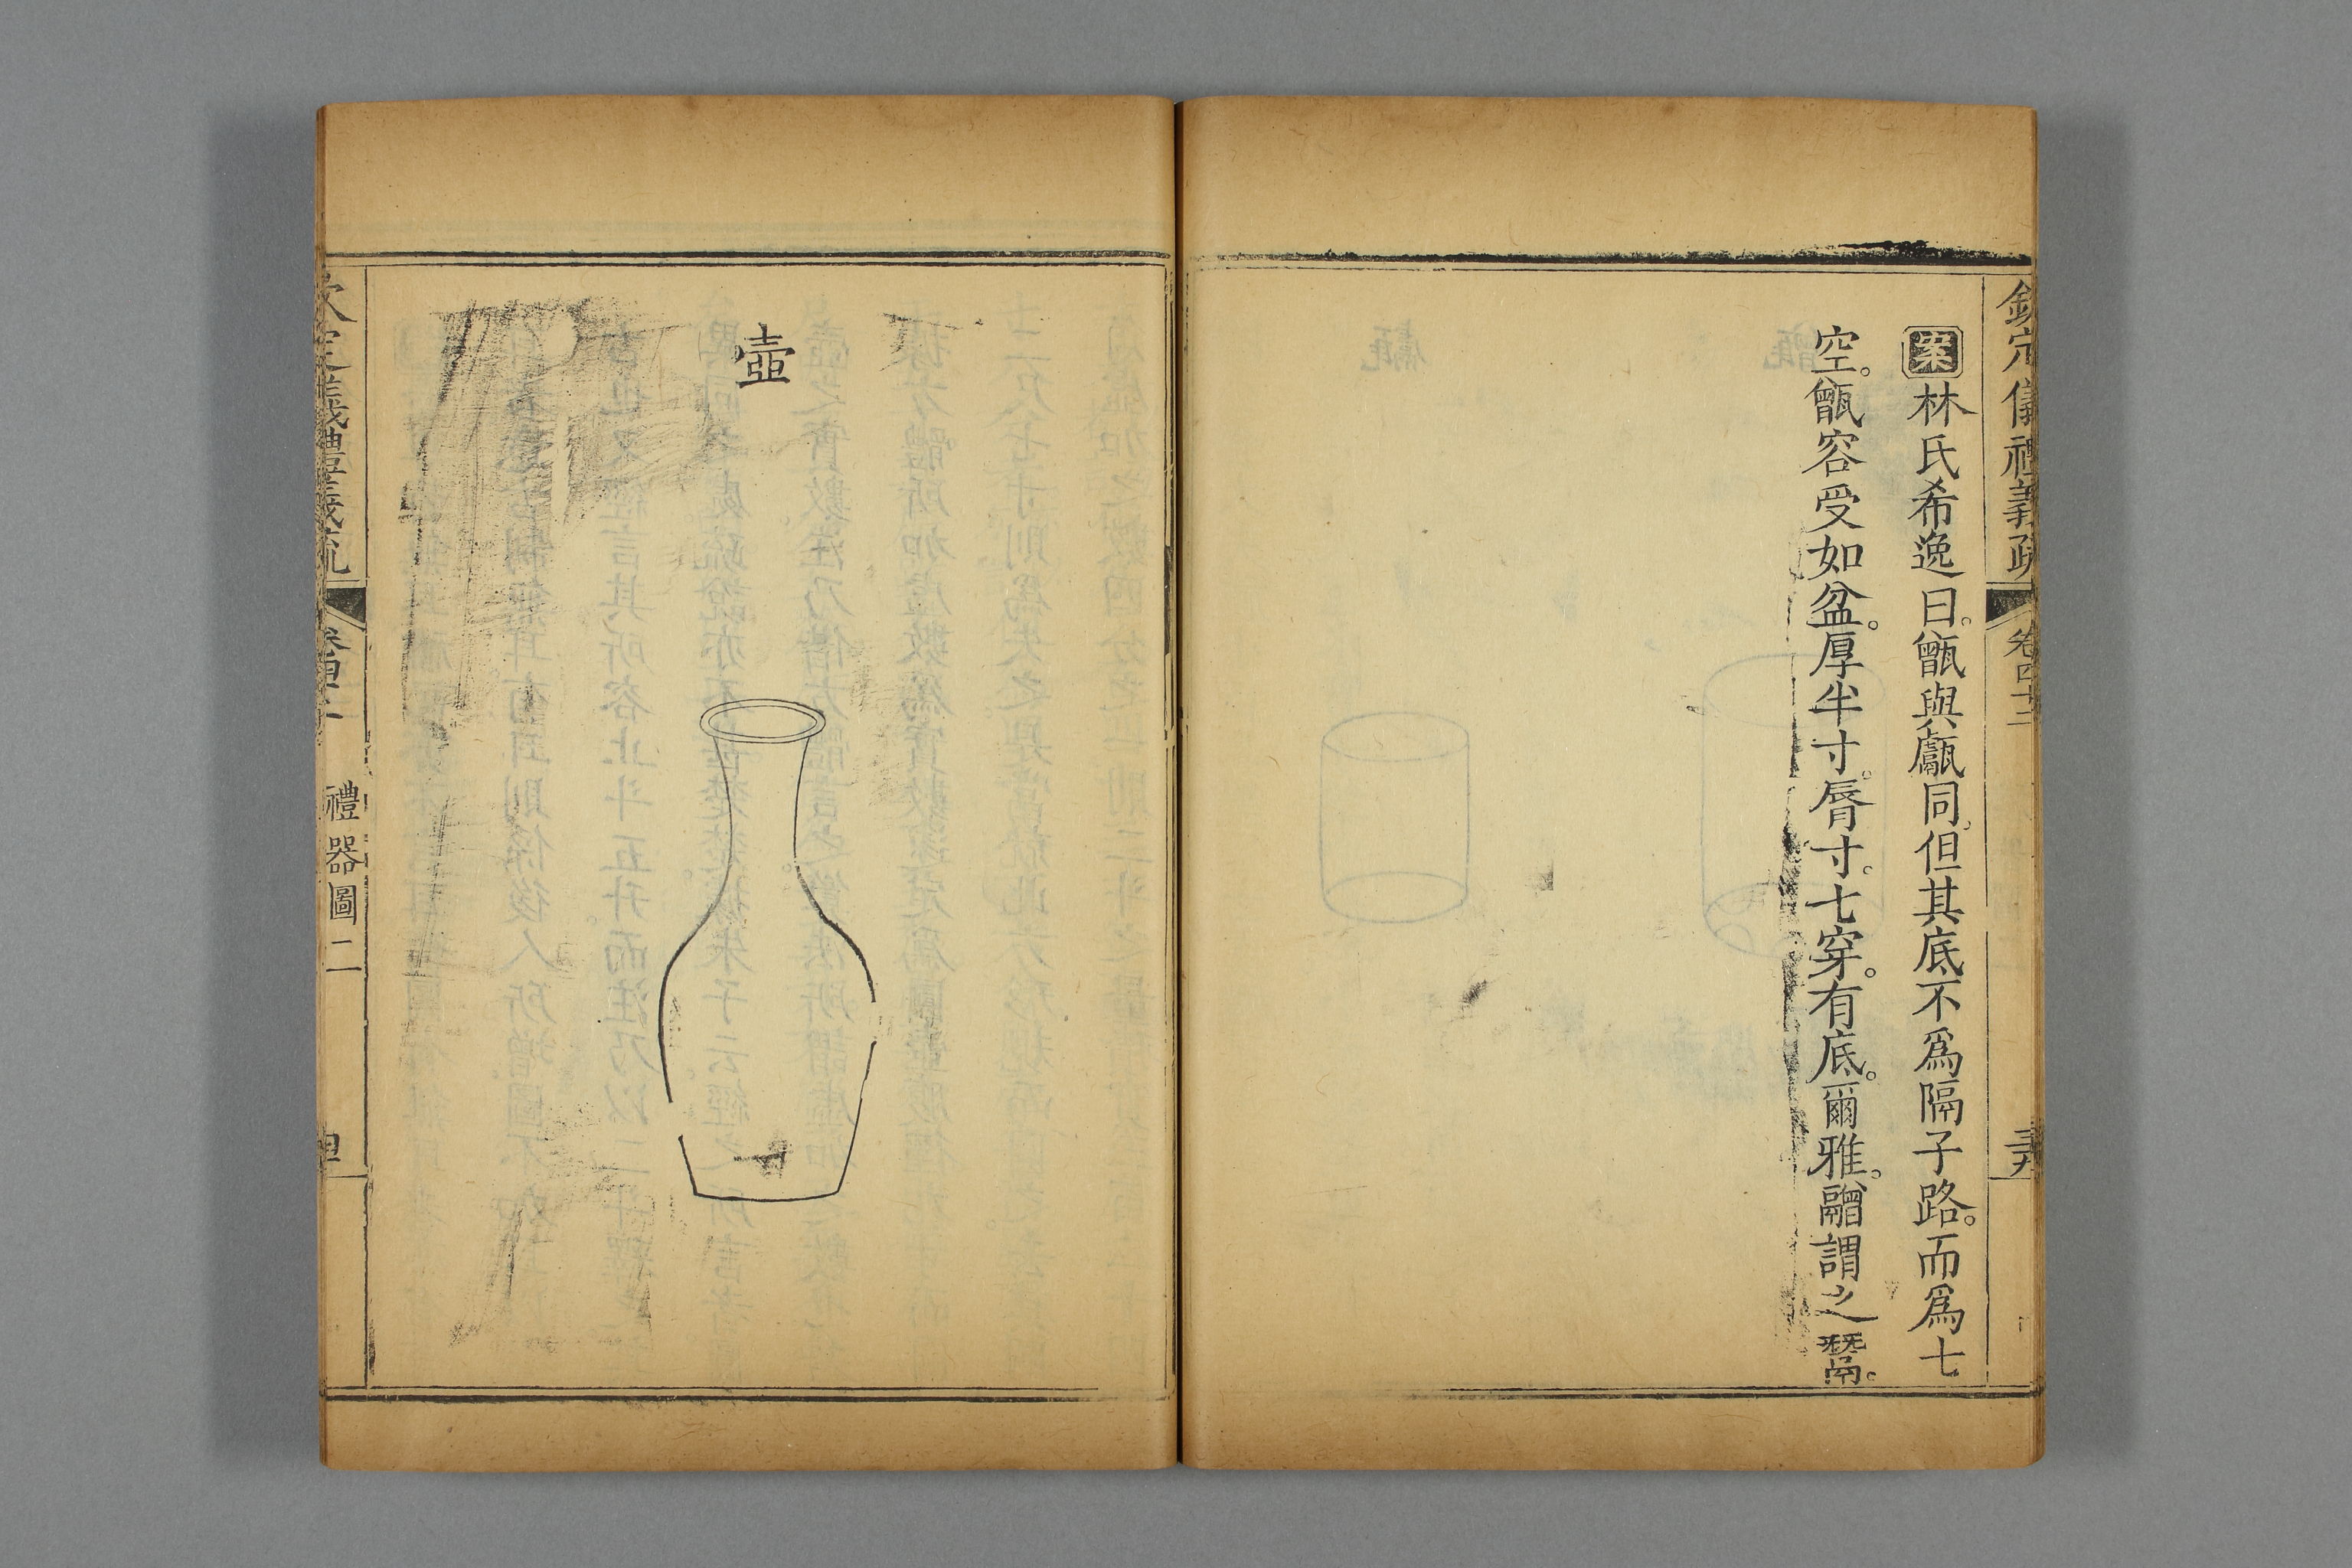 欽定儀禮義疏 卷四十二
案林氏希逸曰。甑與甗同。但其底不爲隔子路。而爲七
空。甑容受如盆。厚半寸。脣寸。七穿。有底。爾雅。䰝謂之鬵。
壺
欽定儀禮義疏 卷四十二 禮器圖二